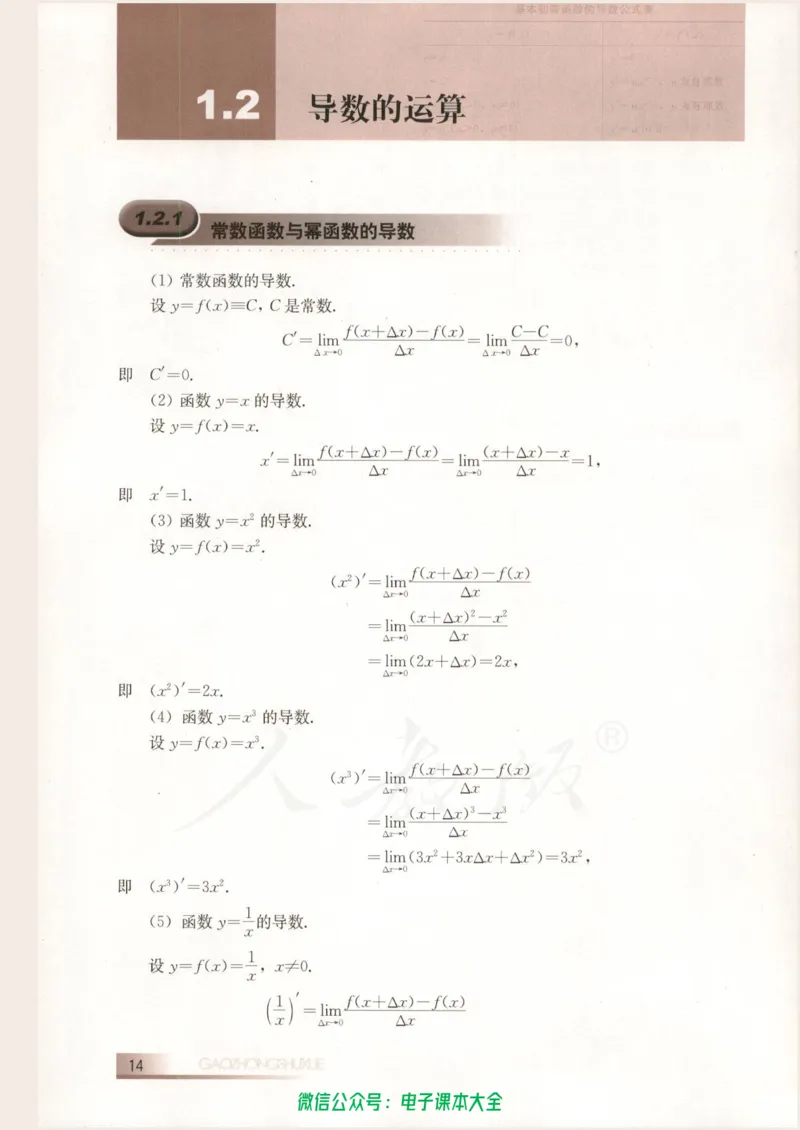 1.2 导数的运算
1.2.1 常数函数与幂函数的导数
(1) 常数函数的导数.
设 y=f(x)≡C, C 是常数.
C′=lim_{Δx→0} \frac{f(x+Δx)-f(x)}{Δx}=lim_{Δx→0} \frac{C-C}{Δx}=0,
即 C′=0.
(2) 函数 y=x 的导数.
设 y=f(x)=x.
x′=lim_{Δx→0} \frac{f(x+Δx)-f(x)}{Δx}=lim_{Δx→0} \frac{(x+Δx)-x}{Δx}=1,
即 x′=1.
(3) 函数 y=x² 的导数.
设 y=f(x)=x².
(x²)′=lim_{Δx→0} \frac{f(x+Δx)-f(x)}{Δx}
=lim_{Δx→0} \frac{(x+Δx)²-x²}{Δx}
=lim_{Δx→0} (2x+Δx)=2x,
即 (x²)′=2x.
(4) 函数 y=x³ 的导数.
设 y=f(x)=x³.
(x³)′=lim_{Δx→0} \frac{f(x+Δx)-f(x)}{Δx}
=lim_{Δx→0} \frac{(x+Δx)³-x³}{Δx}
=lim_{Δx→0} (3x²+3xΔx+Δx²)=3x²,
即 (x³)′=3x².
(5) 函数 y=\frac{1}{x} 的导数.
设 y=f(x)=\frac{1}{x}, x≠0.
(\frac{1}{x})′=lim_{Δx→0} \frac{f(x+Δx)-f(x)}{Δx}
人教版®
14 GAOZHONGSHUXUE
微信公众号：电子课本大全